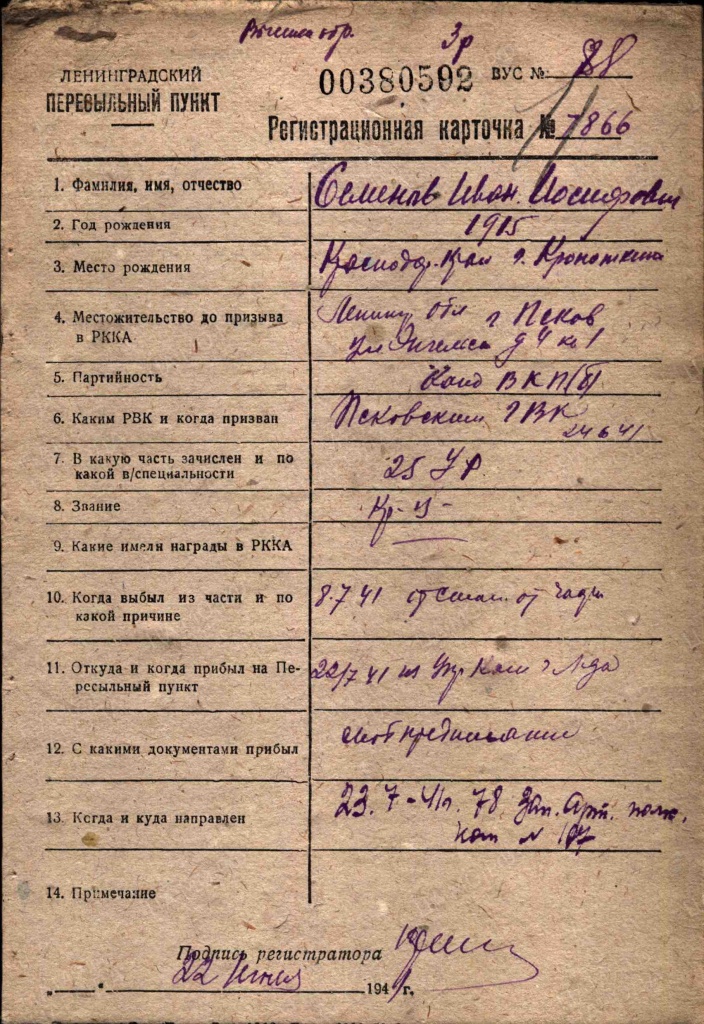 Зр
ЛЕНИНГРАДСКИЙ
ПЕРЕСЫЛЬНЫЙ ПУНКТ
00380592 ВУС №
Регистрационная карточка № 7866
1. Фамилия, имя, отчество Семенов Иван Иосифович
2. Год рождения 1915
3. Место рождения Краснодар. Край г. Кропоткин
4. Местожительство до призыва Ленинг обл г Псков
в РККА ул Энгельса д 4 к 1
5. Партийность Канд ВКП(б)
6. Каким РВК и когда призван Псковским ГВК
24 6 41
7. В какую часть зачислен и по
какой в/специальности 25 УР
8. Звание Кр-ц-
9. Какие имели награды в РККА
10. Когда выбыл из части и по 8.7 41 отстал от части
какой причине
11. Откуда и когда прибыл на Пе- 22/7 41 из
ресыльный пункт
12. С какими документами прибыл предписание
13. Когда и куда направлен 23.7-41г. 78 Зап. Арт. полк,
ком № 107
14. Примечание
Подпись регистратора
„ 22 Июля 1941 г.